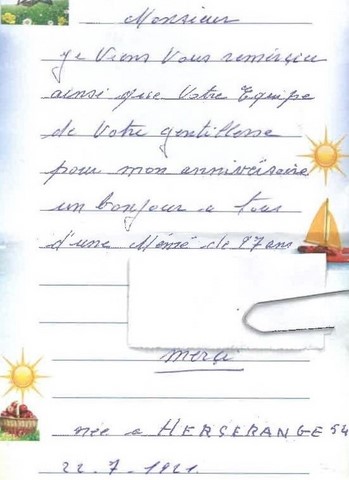 Monsieur
je viens vous remercier
ainsi que votre Equipe
de votre gentillesse
pour mon anniversaire
un bonjour a tous
d'une Mémé de 87 ans
merci
née a HERSERANGE 54
22.7.1921